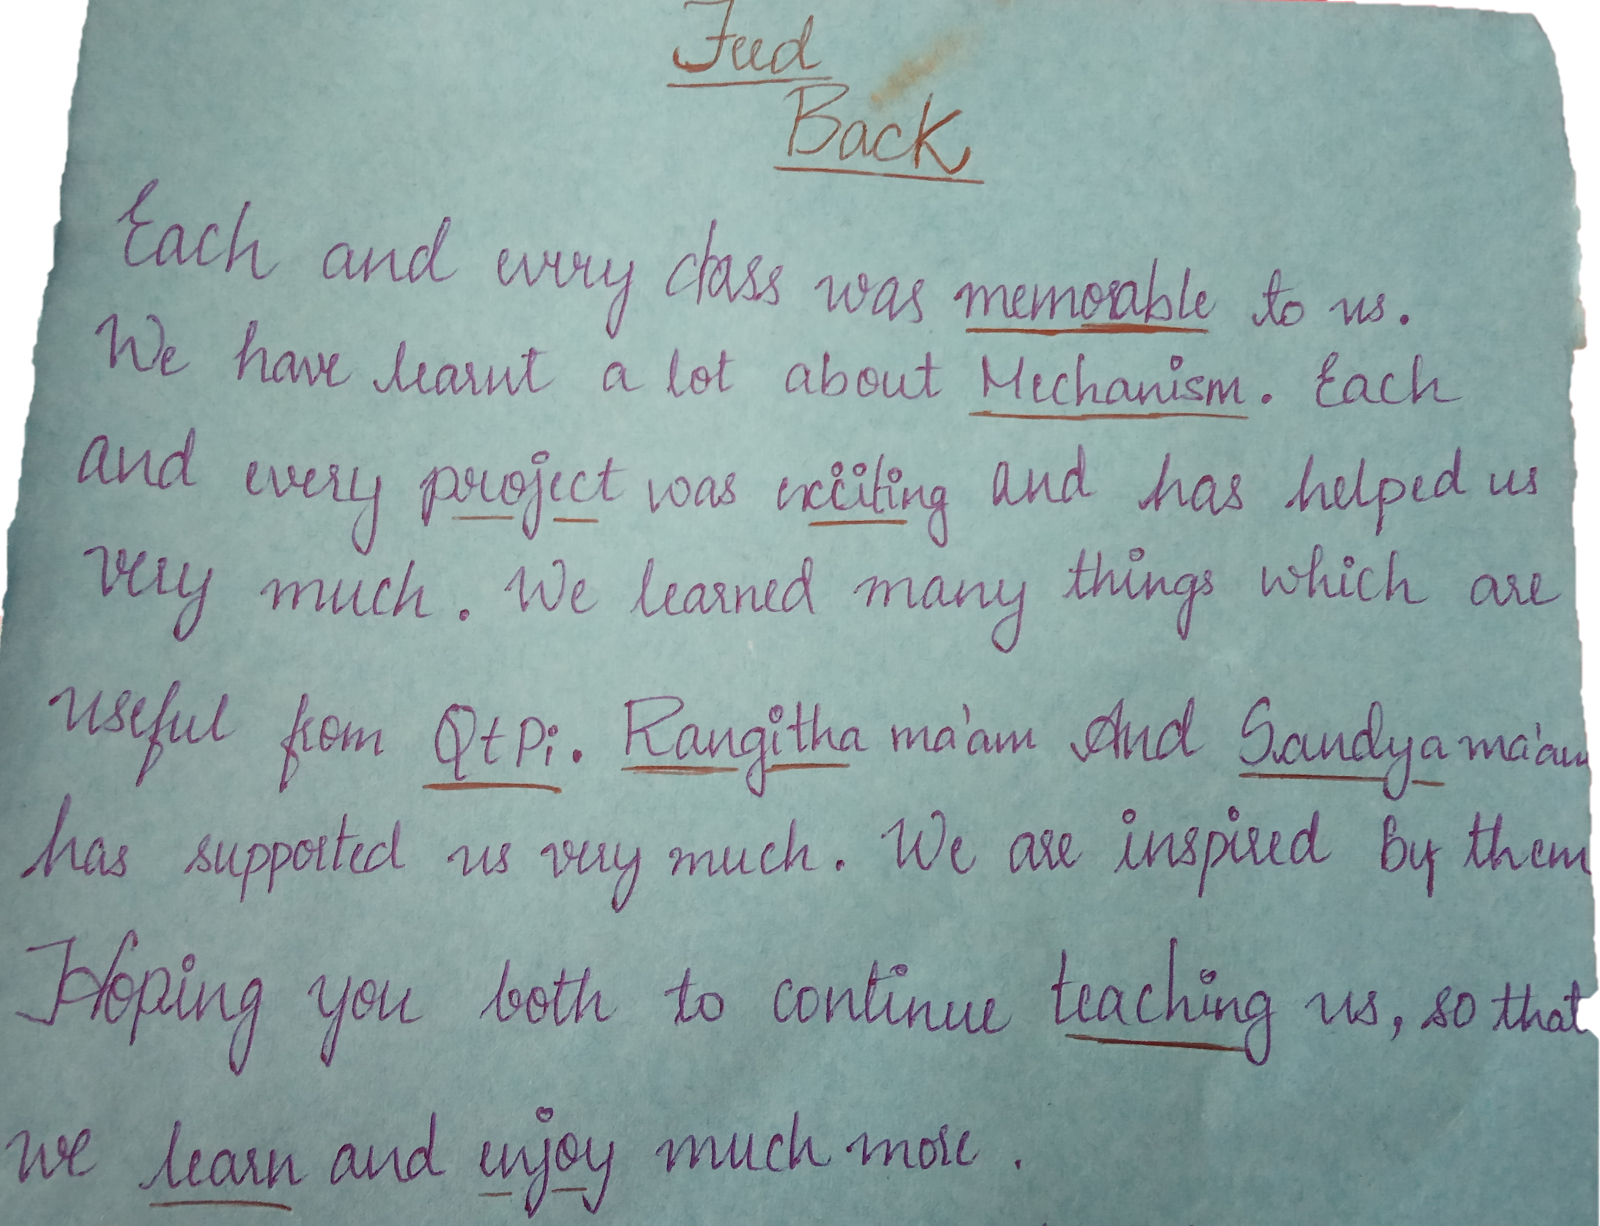 Feed
Back
Each and every class was memorable to us.
We have learnt a lot about Mechanism. Each
and every project was exciting and has helped us
very much. We learned many things which are
useful from QtPi. Rangitha ma'am And Sandya ma'am
has supported us very much. We are inspired by them
Hoping you both to continue teaching us, so that
we learn and enjoy much more.